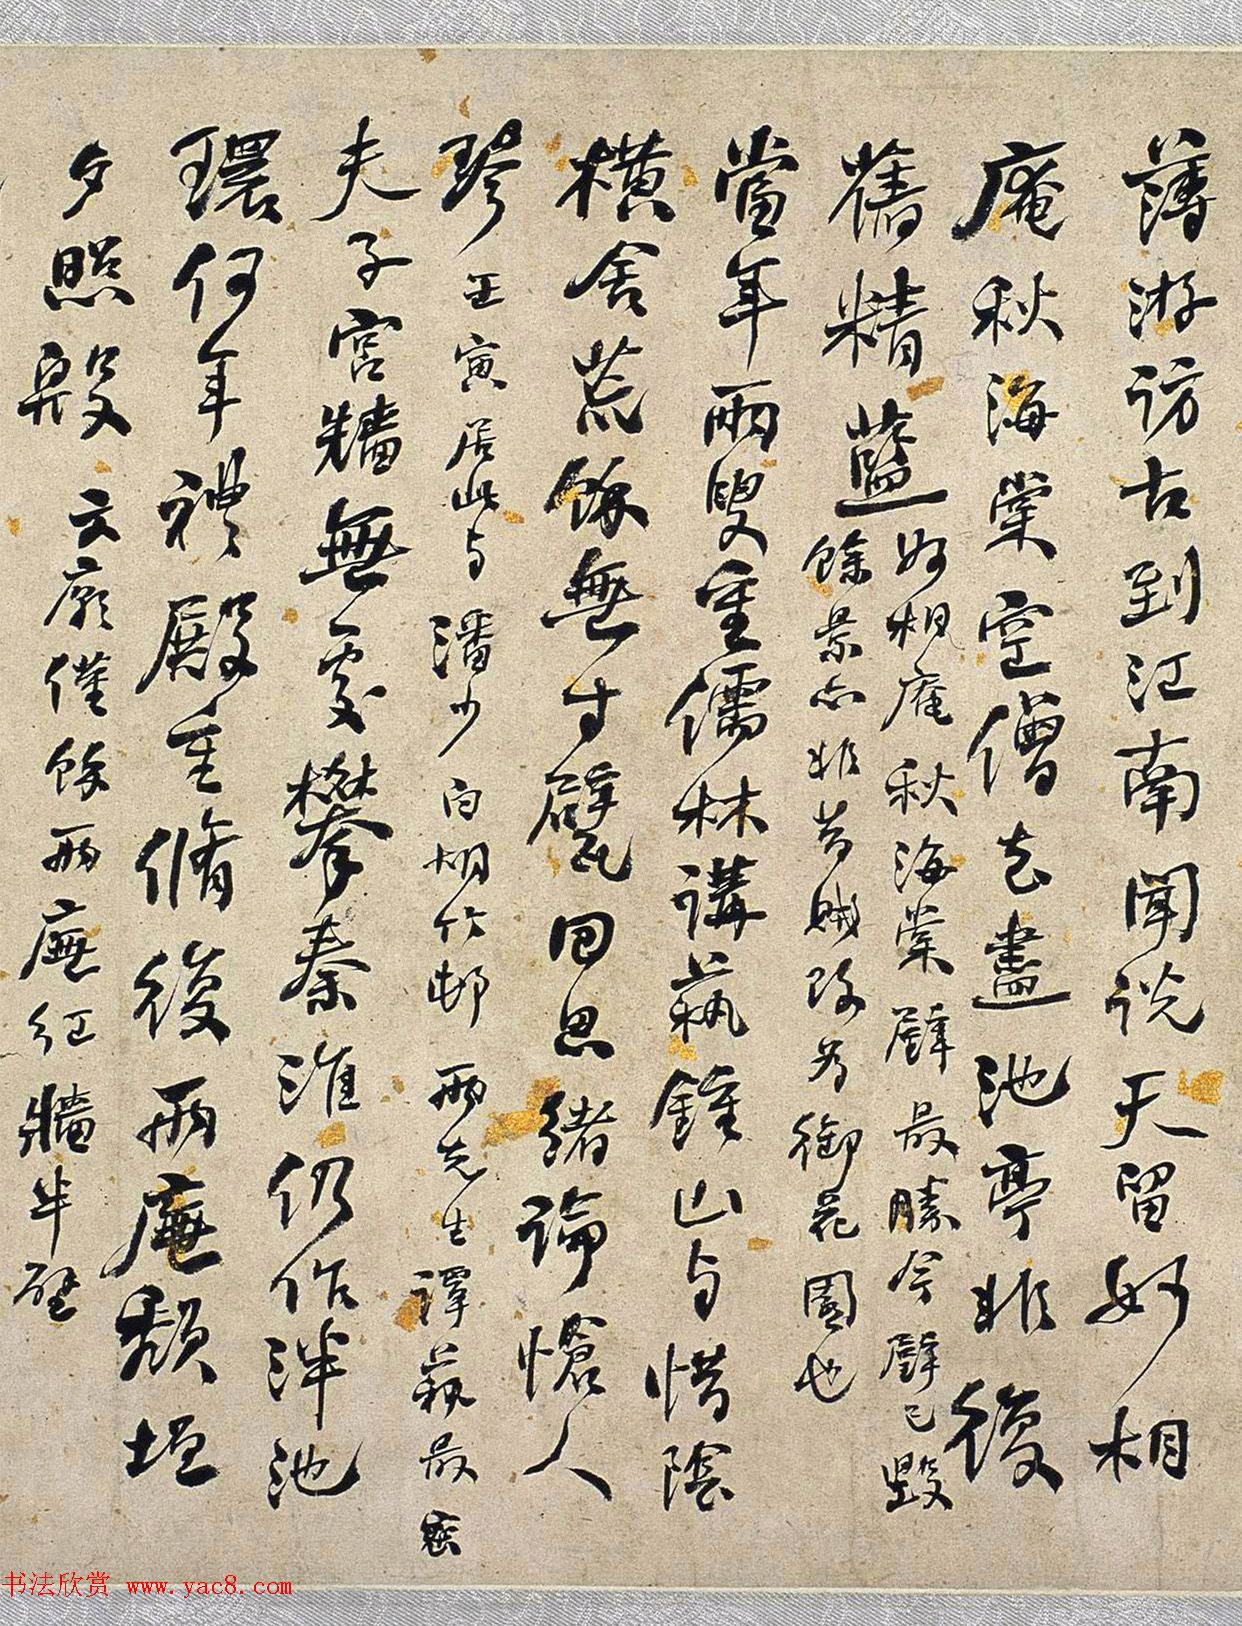 薄游訪古到江南聞說天留妙相
庵秋海棠空僧去盡池亭非復
舊精藍
妙相庵秋海棠壁最勝今壁已毀
餘景亦非昔賊改為御花園也
當年兩叟重儒林講蓺鍾山与惜陰
橫舍荒餘無寸甓回思緒論愴人
琴
壬寅居此与潘少白胡竹邨兩先生譚蓺最密
夫子宮牆無處攀秦淮仍作泮池
環何年禮殿重脩復兩廡頹垣
夕照殷
云廟僅餘兩廡紅牆半壁
书法欣赏 www.yac8.com